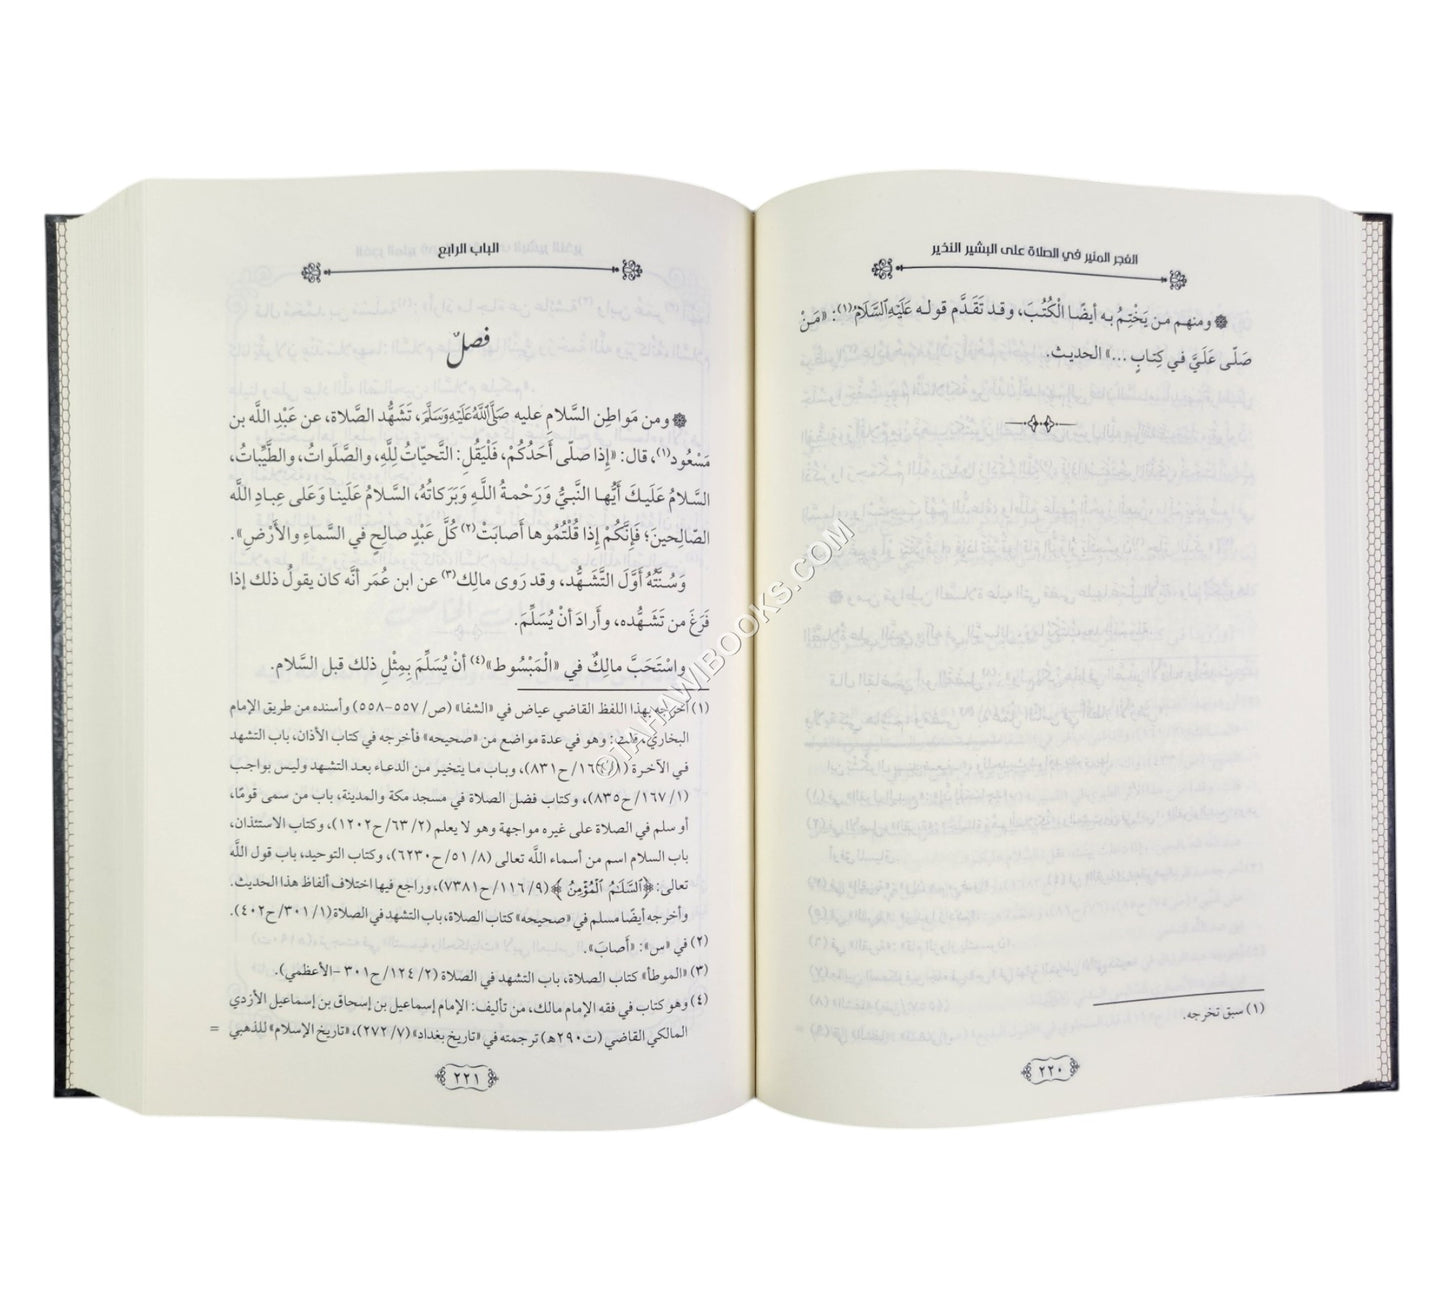 الفجر المنير في الصلاة على البشير النذير
❁ ومنهم من يَخْتِمُ به أيضًا الْكُتُبَ، وقد تَقَدَّم قوله عَلَيْهِ السَّلَامُ(١): «مَنْ
صَلّى عَلَيَّ في كِتابٍ ...» الحديث.
(١) سبق تخرجه.
٢٢٠
الباب الرابع
فصلٌ
❁ ومن مَواطِن السَّلامِ عليه صَلَّى اللَّهُ عَلَيْهِ وَسَلَّمَ، تَشَهُّد الصَّلاة، عن عَبْدِ اللَّه بن
مَسْعُود(١)، قال: «إذا صلّى أَحَدُكُمْ، فَلْيَقُلِ: التَّحيّاتُ لِلَّهِ، والصَّلَواتُ، والطَّيِّباتُ،
السَّلامُ عَلَيكَ أَيُّها النَّبيُّ وَرَحْمةُ اللَّهِ وَبَرَكاتُهُ، السَّلامُ عَلَينا وَعَلى عِبادِ اللَّه
الصّالِحينَ؛ فَإِنَّكُمْ إِذا قُلْتُمُوها أَصابَتْ(٢) كُلَّ عَبْدٍ صالِحٍ في السَّماءِ والأَرْضِ».
وَسُنَّتُهُ أَوَّلَ التَّشَهُّد، وقد رَوى مالِك(٣) عن ابن عُمَر أنَّه كان يقولُ ذلك إذا
فَرَغَ من تَشَهُّده، وأَرادَ أنْ يُسَلِّمَ.
واسْتَحَبَّ مالِكٌ في «الْمَبْسُوط»(٤) أنْ يُسَلِّمَ بِمِثْلِ ذلك قبل السَّلام.
(١) أخرجه بهذا اللفظ القاضي عياض في «الشفا» (ص/ ٥٥٧-٥٥٨) وأسنده من طريق الإمام
البخاري، قلت: وهو في عدة مواضع من «صحيحه» فأخرجه في كتاب الأذان، باب التشهد
في الآخرة (١/ ١٦٦/ ح٨٣١)، وباب ما يتخير من الدعاء بعد التشهد وليس بواجب
(١/ ١٦٧/ ح٨٣٥)، وكتاب فضل الصلاة في مسجد مكة والمدينة، باب من سمى قومًا،
أو سلم في الصلاة على غيره مواجهة وهو لا يعلم (٢/ ٦٣/ ح١٢٠٢)، وكتاب الاستئذان،
باب السلام اسم من أسماء اللَّه تعالى (٨/ ٥١/ ح٦٢٣٠)، وكتاب التوحيد، باب قول اللَّه
تعالى: ﴿ٱلسَّلَـٰمُ ٱلْمُؤْمِنُ﴾ (٩/ ١١٦/ ح٧٣٨١)، وراجع فيها اختلاف ألفاظ هذا الحديث.
وأخرجه أيضًا مسلم في «صحيحه» كتاب الصلاة، باب التشهد في الصلاة (١/ ٣٠١/ ح٤٠٢).
(٢) في «س»: «أصابَ».
(٣) «الموطأ» كتاب الصلاة، باب التشهد في الصلاة (٢/ ١٢٤/ ح٣٠١ -الأعظمي).
(٤) وهو كتاب في فقه الإمام مالك، من تأليف: الإمام إسماعيل بن إسحاق بن إسماعيل الأزدي
المالكي القاضي (ت٢٩٠هـ) ترجمته في «تاريخ بغداد» (٧/ ٢٧٢)، «تاريخ الإسلام» للذهبي =
٢٢١
©TAHAWIBOOKS.COM